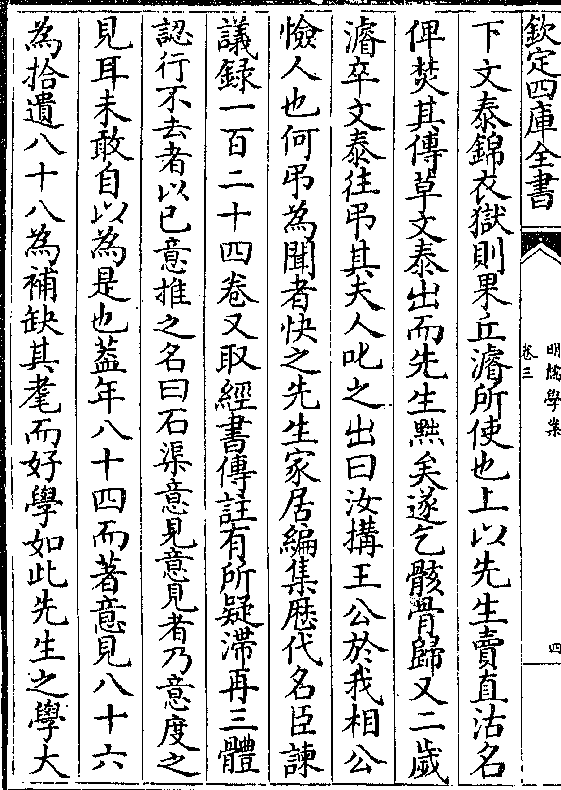 欽定四庫全書
明儒學案
卷三
四
下文泰錦衣獄則果丘濬所使也上以先生賣直沽名
俾焚其傳草文泰出而先生㸃矣遂乞骸骨歸又二歲
濬卒文泰往弔其夫人叱之出曰汝搆王公於我相公
憸人也何弔為聞者快之先生家居編集歴代名臣諫
議録一百二十四卷又取經書傳註有所疑滯再三體
認行不去者以已意推之名曰石渠意見意見者乃意度之
見耳未敢自以為是也葢年八十四而著意見八十六
為拾遺八十八為補缺其耄而好學如此先生之學大